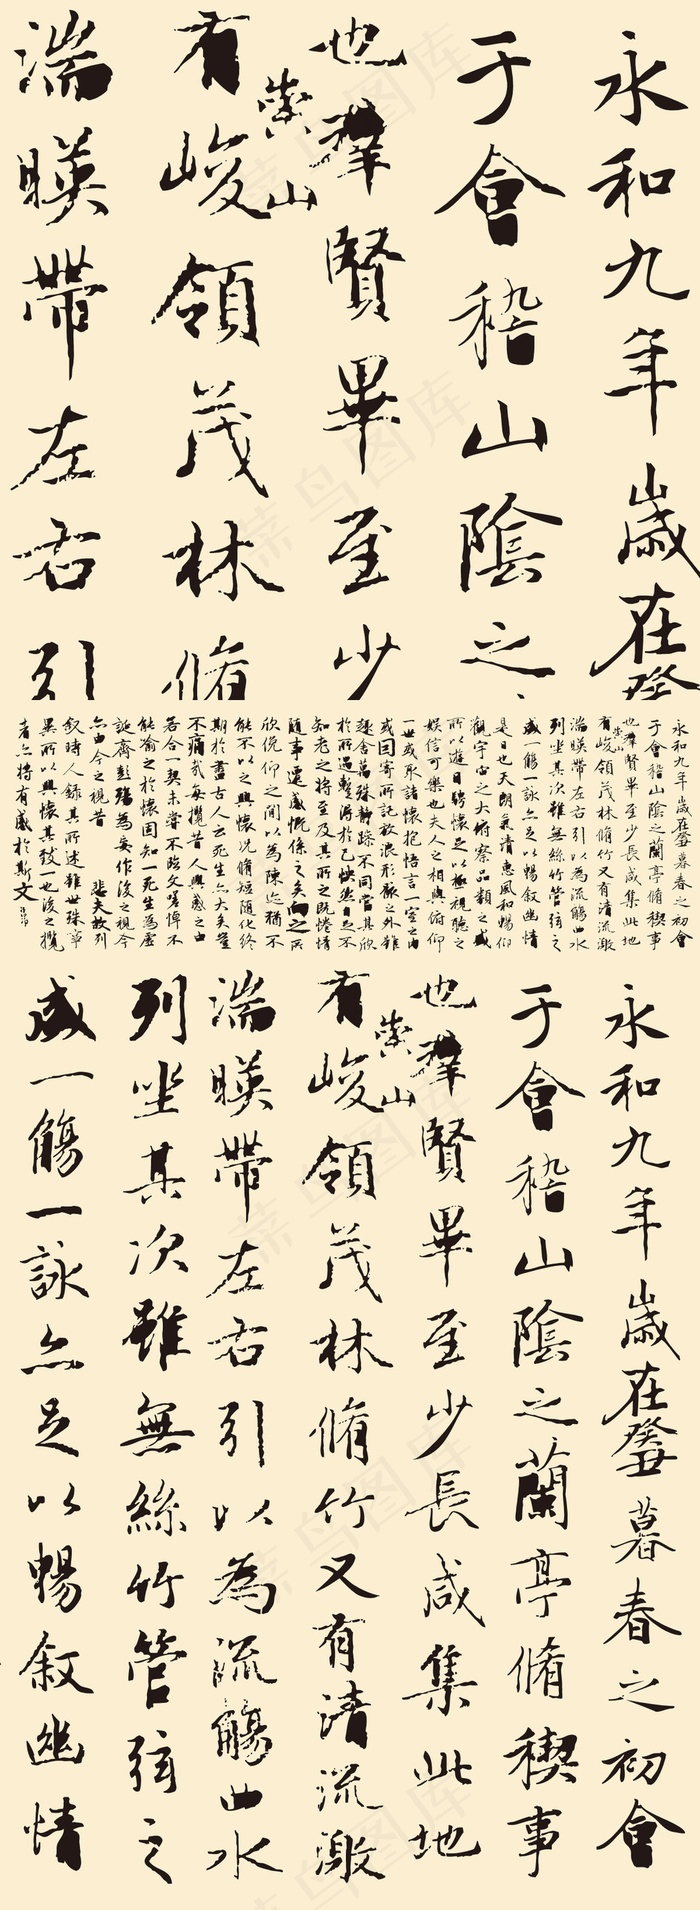 永和九年歲在癸
于會稽山陰之
也羣賢畢至少
崇山
有峻領茂林脩
湍暎帶左右引
永和九年歲在癸丑暮春之初會
于會稽山陰之蘭亭脩稧事
也羣賢畢至少長咸集此地
崇山
有峻領茂林脩竹又有清流激
湍暎帶左右引以為流觴曲水
列坐其次雖無絲竹管弦之
盛一觴一詠亦足以暢敘幽情
是日也天朗氣清惠風和暢仰
觀宇宙之大俯察品類之盛
所以遊目騁懷足以極視聽之
娛信可樂也夫人之相與俯仰
一世或取諸懷抱悟言一室之內
或因寄所託放浪形骸之外雖
趣舍萬殊靜躁不同當其欣
於所遇蹔得於己怏然自足不
知老之將至及其所之既惓情
隨事遷感慨係之矣向之所
欣俛仰之閒以為陳迹猶不
能不以之興懷況脩短隨化終
期於盡古人云死生亦大矣豈
不痛哉每攬昔人興感之由
若合一契未嘗不臨文嗟悼不
能喻之於懷固知一死生為虛
誕齊彭殤為妄作後之視今
亦由今之視昔 悲夫故列
敘時人錄其所述雖世殊事
異所以興懷其致一也後之攬
者亦將有感於斯文
永和九年歲在癸丑暮春之初會
于會稽山陰之蘭亭脩稧事
也羣賢畢至少長咸集此地
崇山
有峻領茂林脩竹又有清流激
湍暎帶左右引以為流觴曲水
列坐其次雖無絲竹管弦之
盛一觴一詠亦足以暢敘幽情
菜鸟图库